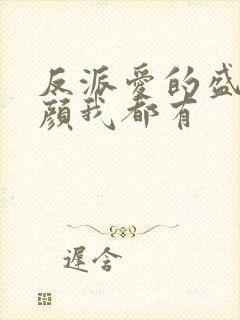 反派爱的盛
颜我都有
遲含